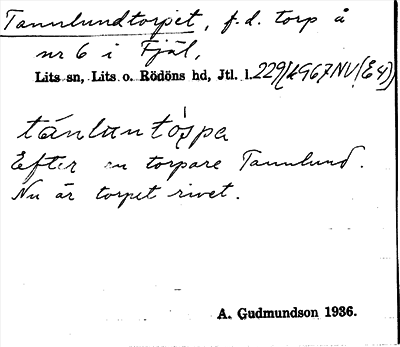 Tannlundtorpet, f.d. torp å
nr 6 i Fjäl,
Lits sn, Lits o. Rödöns hd, Jtl. l.
tánluntòṣpa
Efter en torpare Tannlund.
Nu är torpet rivet.
A. Gudmundson 1936.